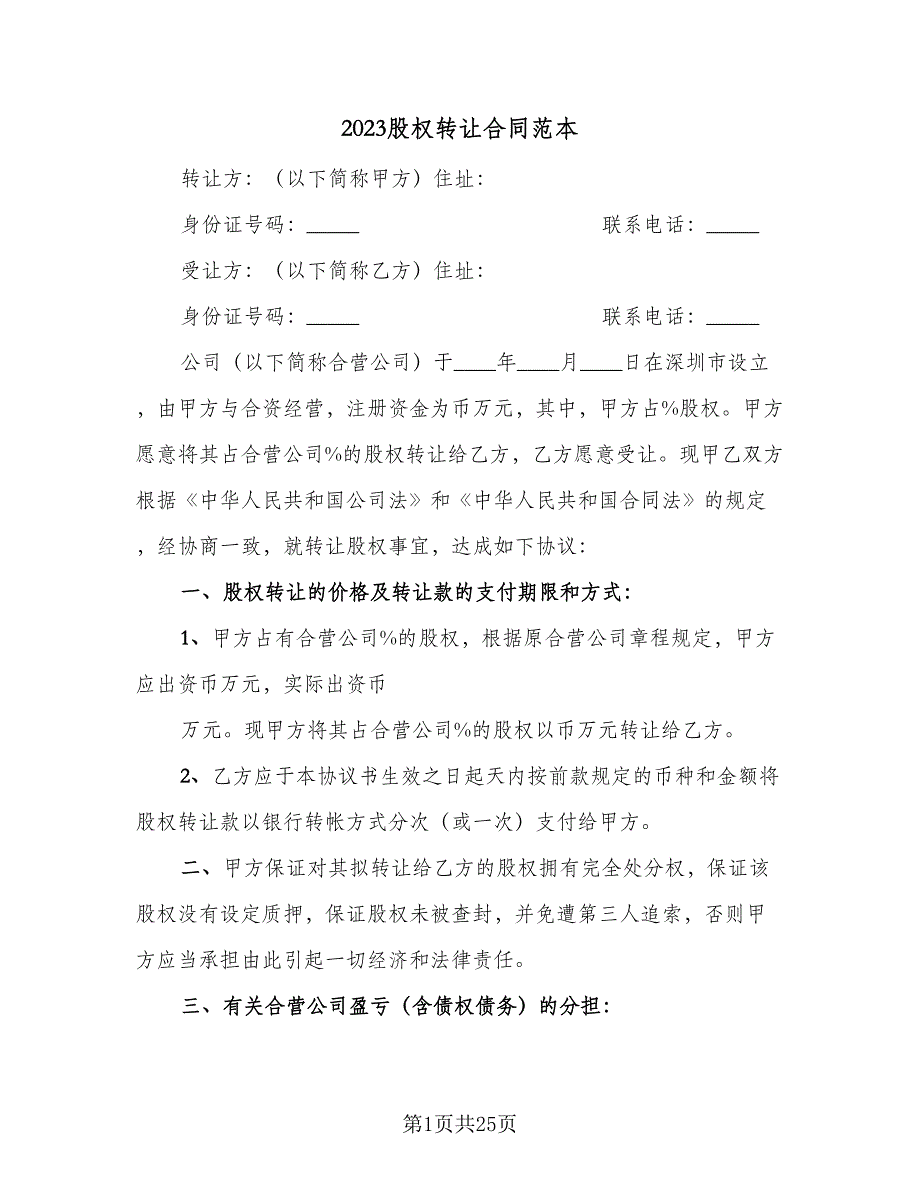 2023股权转让合同范本
转让方：（以下简称甲方）住址：
身份证号码：_____ 联系电话：_____
受让方：（以下简称乙方）住址：
身份证号码：_____ 联系电话：_____
公司（以下简称合营公司）于____年____月____日在深圳市设立
，由甲方与合资经营，注册资金为币万元，其中，甲方占%股权。甲方
愿意将其占合营公司%的股权转让给乙方，乙方愿意受让。现甲乙双方
根据《中华人民共和国公司法》和《中华人民共和国合同法》的规定
，经协商一致，就转让股权事宜，达成如下协议：
一、股权转让的价格及转让款的支付期限和方式：
1、甲方占有合营公司%的股权，根据原合营公司章程规定，甲方
应出资币万元，实际出资币
万元。现甲方将其占合营公司%的股权以币万元转让给乙方。
2、乙方应于本协议书生效之日起天内按前款规定的币种和金额将
股权转让款以银行转帐方式分次（或一次）支付给甲方。
二、甲方保证对其拟转让给乙方的股权拥有完全处分权，保证该
股权没有设定质押，保证股权未被查封，并免遭第三人追索，否则甲
方应当承担由此引起一切经济和法律责任。
三、有关合营公司盈亏（含债权债务）的分担：
第1页共25页